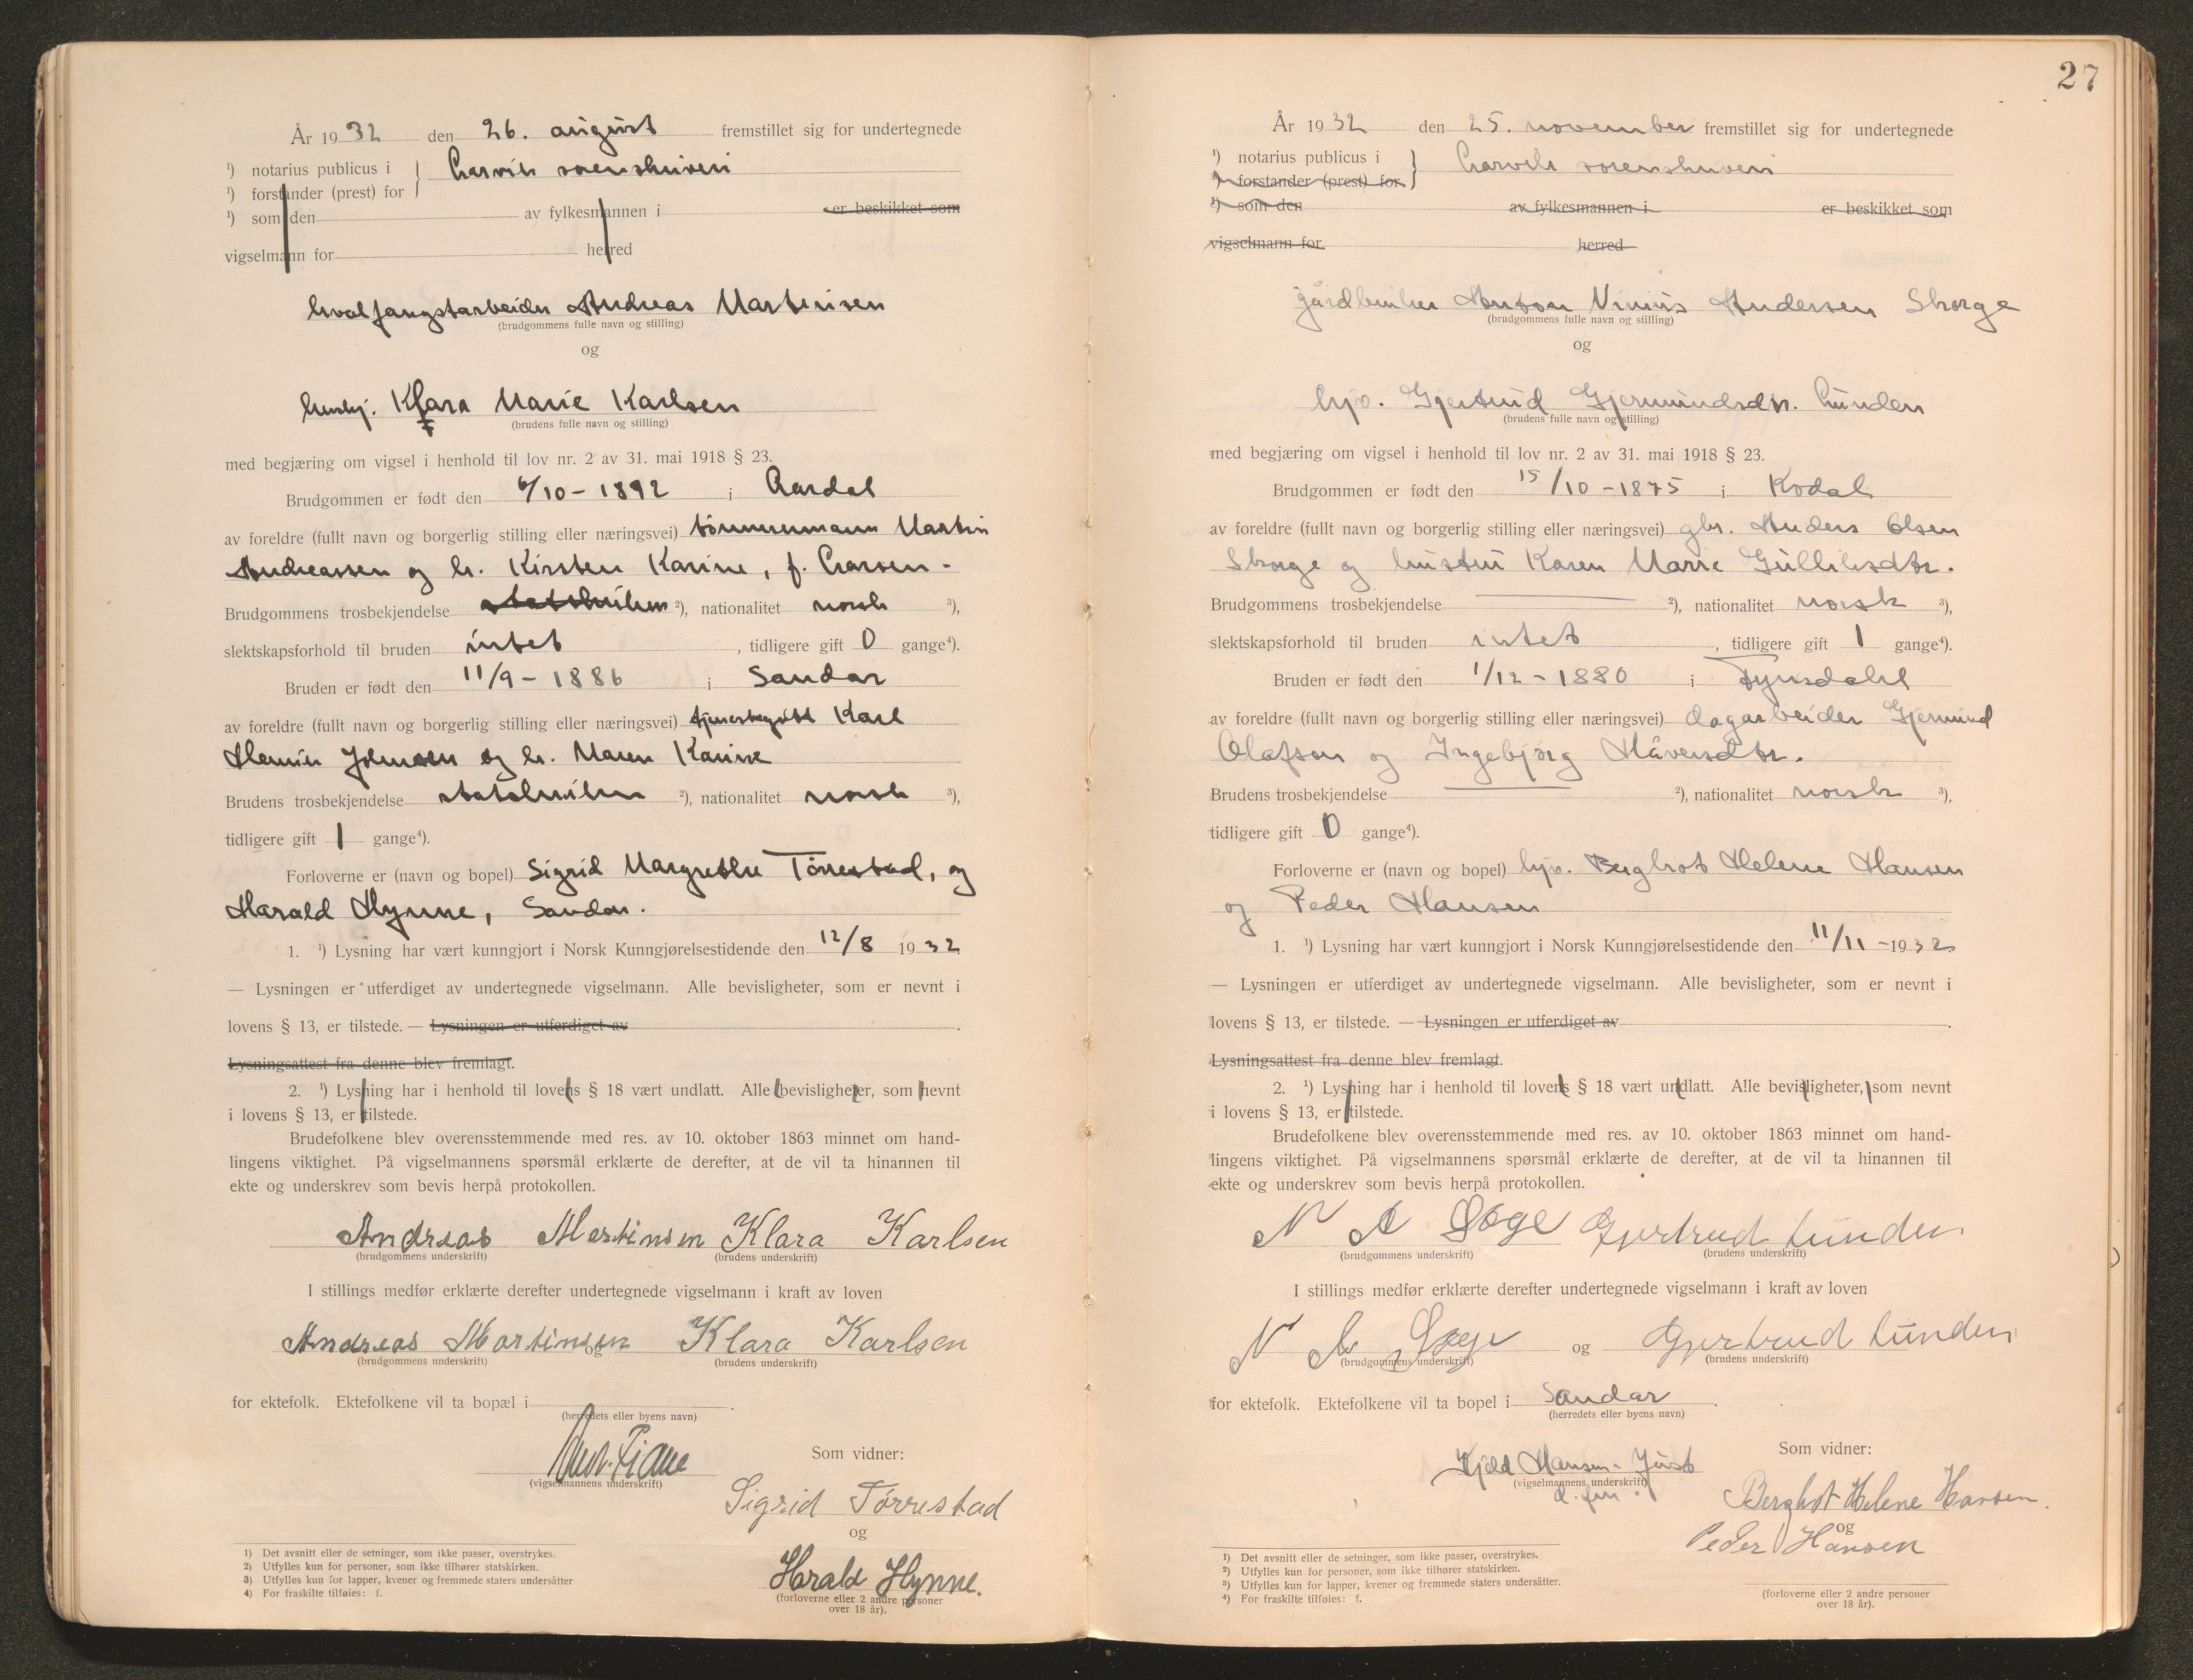 År 1932 den 26. august fremstillet sig for undertegnede
¹) notarius publicus i } Larvik sorenskriveri
¹) forstander (prest) for
¹) som den av fylkesmannen i er beskikket som
vigselmann for herred
hvalfangstarbeider Andreas Martinsen
(brudgommens fulle navn og stilling)
og
hushj. Klara Marie Karlsen
(brudens fulle navn og stilling)
med begjæring om vigsel i henhold til lov nr. 2 av 31. mai 1918 § 23.
Brudgommen er født den 6/10 - 1892 i Aardal
av foreldre (fullt navn og borgerlig stilling eller næringsvei) tömmermann Martin
Andreassen og h. Kirsten Karine, f. Larsen.
Brudgommens trosbekjendelse statskirken ²), nationalitet norsk ³),
slektskapsforhold til bruden intet , tidligere gift 0 gange⁴).
Bruden er født den 11/9 - 1886 i Sandar
av foreldre (fullt navn og borgerlig stilling eller næringsvei) Karl
Henrik Johnsen og h. Maren Karine
Brudens trosbekjendelse statskirken ²), nationalitet norsk ³),
tidligere gift 1 gange⁴).
Forloverne er (navn og bopel) Sigrid Margrethe Törrestad, og
Harald Hynne, Sandar.
1. ¹) Lysning har vært kunngjort i Norsk Kunngjørelsestidende den 12/8 1932
— Lysningen er utferdiget av undertegnede vigselmann. Alle bevisligheter, som er nevnt i
lovens § 13, er tilstede. — Lysningen er utferdiget av .
Lysningsattest fra denne blev fremlagt.
2. ¹) Lysning har i henhold til lovens § 18 vært undlatt. Alle bevisligheter, som nevnt
i lovens § 13, er tilstede.
Brudefolkene blev overensstemmende med res. av 10. oktober 1863 minnet om hand-
lingens viktighet. På vigselmannens spørsmål erklærte de derefter, at de vil ta hinannen til
ekte og underskrev som bevis herpå protokollen.
Andreas Martinsen Klara Karlsen
(brudgommens underskrift) (brudens underskrift)
I stillings medfør erklærte derefter undertegnede vigselmann i kraft av loven
Andreas Martinsen og Klara Karlsen
(brudgommens underskrift) (brudens underskrift)
for ektefolk. Ektefolkene vil ta bopæl i .
(herredets eller byens navn)
Som vidner:
(vigselmannens underskrift)
Sigrid Törrestad
og
Harald Hynne.
(forloverne eller 2 andre personer
over 18 år).
1) Det avsnitt eller de setninger, som ikke passer, overstrykes.
2) Utfylles kun for personer, som ikke tilhører statskirken.
3) Utfylles kun for lapper, kvener og fremmede staters undersåtter
4) For fraskilte tilføies: f.
27
År 1932 den 25. november fremstillet sig for undertegnede
¹) notarius publicus i } Larvik sorenskriveri
¹) forstander (prest) for
¹) som den av fylkesmannen i er beskikket som
vigselmann for herred
gårdbruker Anton Nimis Andersen Skorge
(brudgommens fulle navn og stilling)
og
hjv. Gjertrud Gjermundsdtr. Lunden
(brudens fulle navn og stilling)
med begjæring om vigsel i henhold til lov nr. 2 av 31. mai 1918 § 23.
Brudgommen er født den 15/10 - 1875 i Kodal
av foreldre (fullt navn og borgerlig stilling eller næringsvei) gbr. Anders Olsen
Skorge og hustru Karen Marie Gulliksdtr.
Brudgommens trosbekjendelse ²), nationalitet norsk ³),
slektskapsforhold til bruden intet , tidligere gift 1 gange⁴).
Bruden er født den 1/12 - 1880 i Fyrisdahl
av foreldre (fullt navn og borgerlig stilling eller næringsvei) dagarbeider Gjermund
Olafson og Ingebjörg Håversdtr.
Brudens trosbekjendelse ²), nationalitet norsk ³),
tidligere gift 0 gange⁴).
Forloverne er (navn og bopel) hjv. Bergliot Helene Hansen
og Peder Hansen
1. ¹) Lysning har vært kunngjort i Norsk Kunngjørelsestidende den 11/11 - 1932
— Lysningen er utferdiget av undertegnede vigselmann. Alle bevisligheter, som er nevnt i
lovens § 13, er tilstede. — Lysningen er utferdiget av .
Lysningsattest fra denne blev fremlagt.
2. ¹) Lysning har i henhold til lovens § 18 vært undlatt. Alle bevisligheter, som nevnt
i lovens § 13, er tilstede.
Brudefolkene blev overensstemmende med res. av 10. oktober 1863 minnet om hand-
lingens viktighet. På vigselmannens spørsmål erklærte de derefter, at de vil ta hinannen til
ekte og underskrev som bevis herpå protokollen.
N A Gjertrud Lunden
(brudgommens underskrift) (brudens underskrift)
I stillings medfør erklærte derefter undertegnede vigselmann i kraft av loven
N A og Gjertrud Lunden
(brudgommens underskrift) (brudens underskrift)
for ektefolk. Ektefolkene vil ta bopel i Sandar .
(herredets eller byens navn)
Som vidner:
Kjeld Hansen-Just
(vigselmannens underskrift)
d. fm.
Bergliot Helene Hansen.
og
Peder Hansen
(forloverne eller 2 andre personer
over 18 år).
1) Det avsnitt eller de setninger, som ikke passer, overstrykes.
2) Utfylles kun for personer, som ikke tilhører statskirken.
3) Utfylles kun for lapper, kvener og fremmede staters undersåtter.
4) For fraskilte tilføies: f.